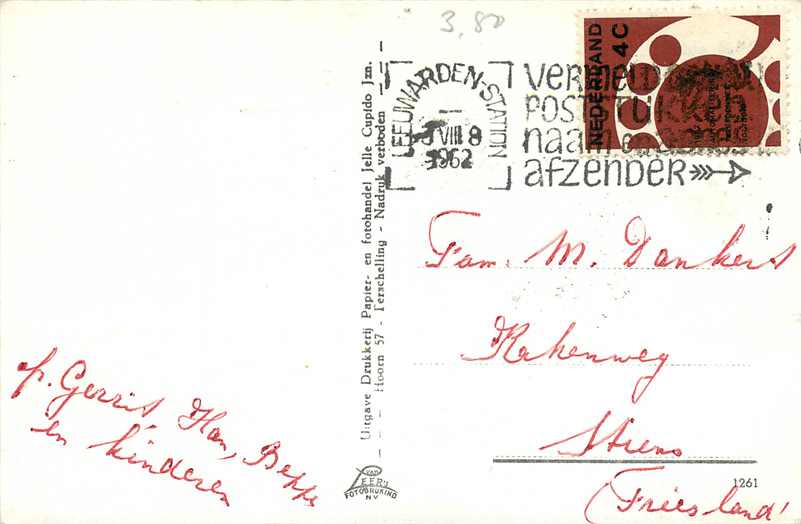 3,80
NEDERLAND
4C
LEEUWARDEN-STATION
VIII 8
1962
VERMELD
POSTSTUKKEN
naam
afzender
Uitgave Drukkerij Papier- en fotohandel Jelle Cupido Jzn.
Hoorn 57 - Terschelling - Nadruk verboden
Fam. M. Dankers
Kakenweg
Stiens
(Friesland)
f. Gerrit, Han, Beppe
en kinderen
VAN
LEER'S
FOTODRUKIND
N.V.
1261